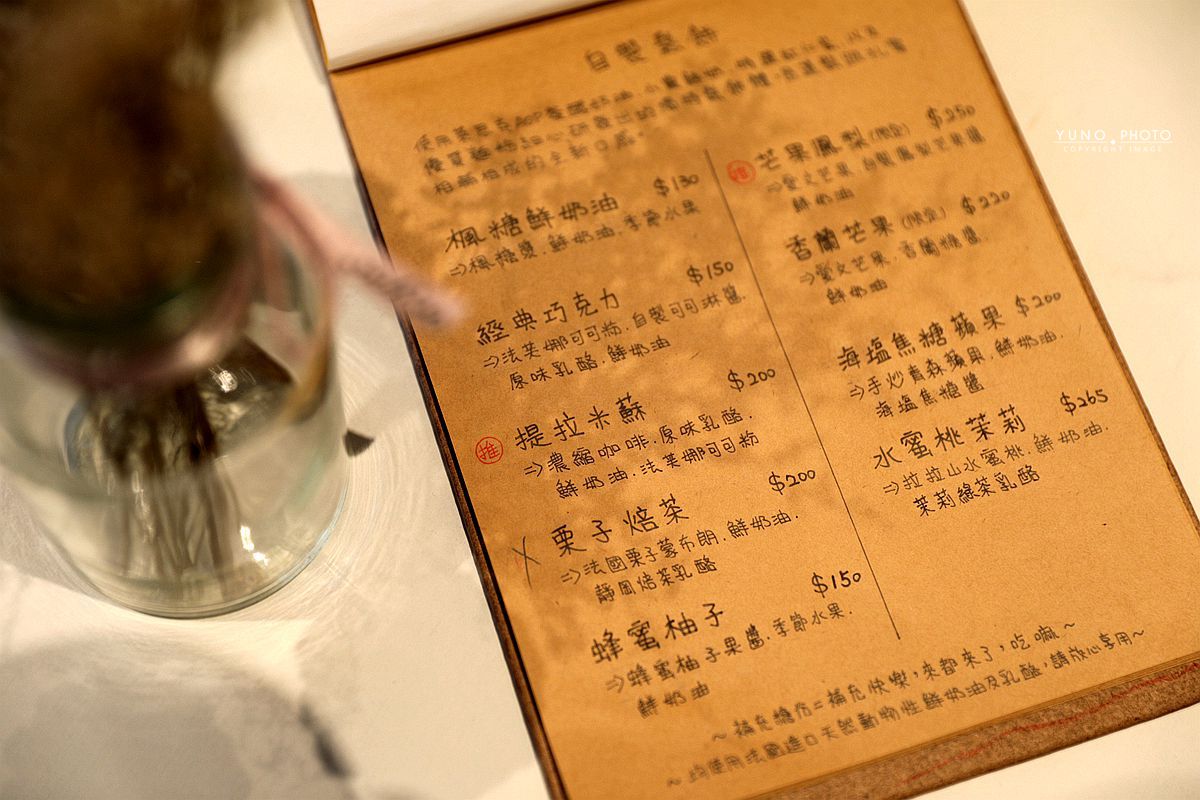 自製鬆餅
使用萊思克AOP發酵奶油.小農雞奶
優質麵粉
相輔相成的全新口感。
楓糖鮮奶油 $130
⇒楓糖漿.鮮奶油.季節水果
經典巧克力 $150
⇒法芙娜可可粉.自製可可淋醬.
原味乳酪.鮮奶油
推 提拉米蘇 $200
⇒濃縮咖啡.原味乳酪.
鮮奶油.法芙娜可可粉
X 栗子焙茶 $200
⇒法國栗子蒙布朗.鮮奶油.
靜岡焙茶乳酪
蜂蜜柚子 $150
⇒蜂蜜柚子果醬.季節水果.
鮮奶油
推 芒果鳳梨(限定) $250
⇒愛文芒果.自製鳳梨芒果醬
鮮奶油
香蘭芒果(限定) $220
⇒愛文芒果.香蘭糖醬.
鮮奶油
海塩焦糖蘋果 $200
⇒手炒青森蘋果.鮮奶油.
海塩焦糖醬
水蜜桃茉莉 $265
⇒拉拉山水蜜桃.鮮奶油.
茉莉綠茶乳酪
～補充糖份=補充快樂,來都來了,吃嘛～
～均使用法國進口天然動物性鮮奶油及乳酪,請放心享用～
YUNO PHOTO
COPYRIGHT IMAGE